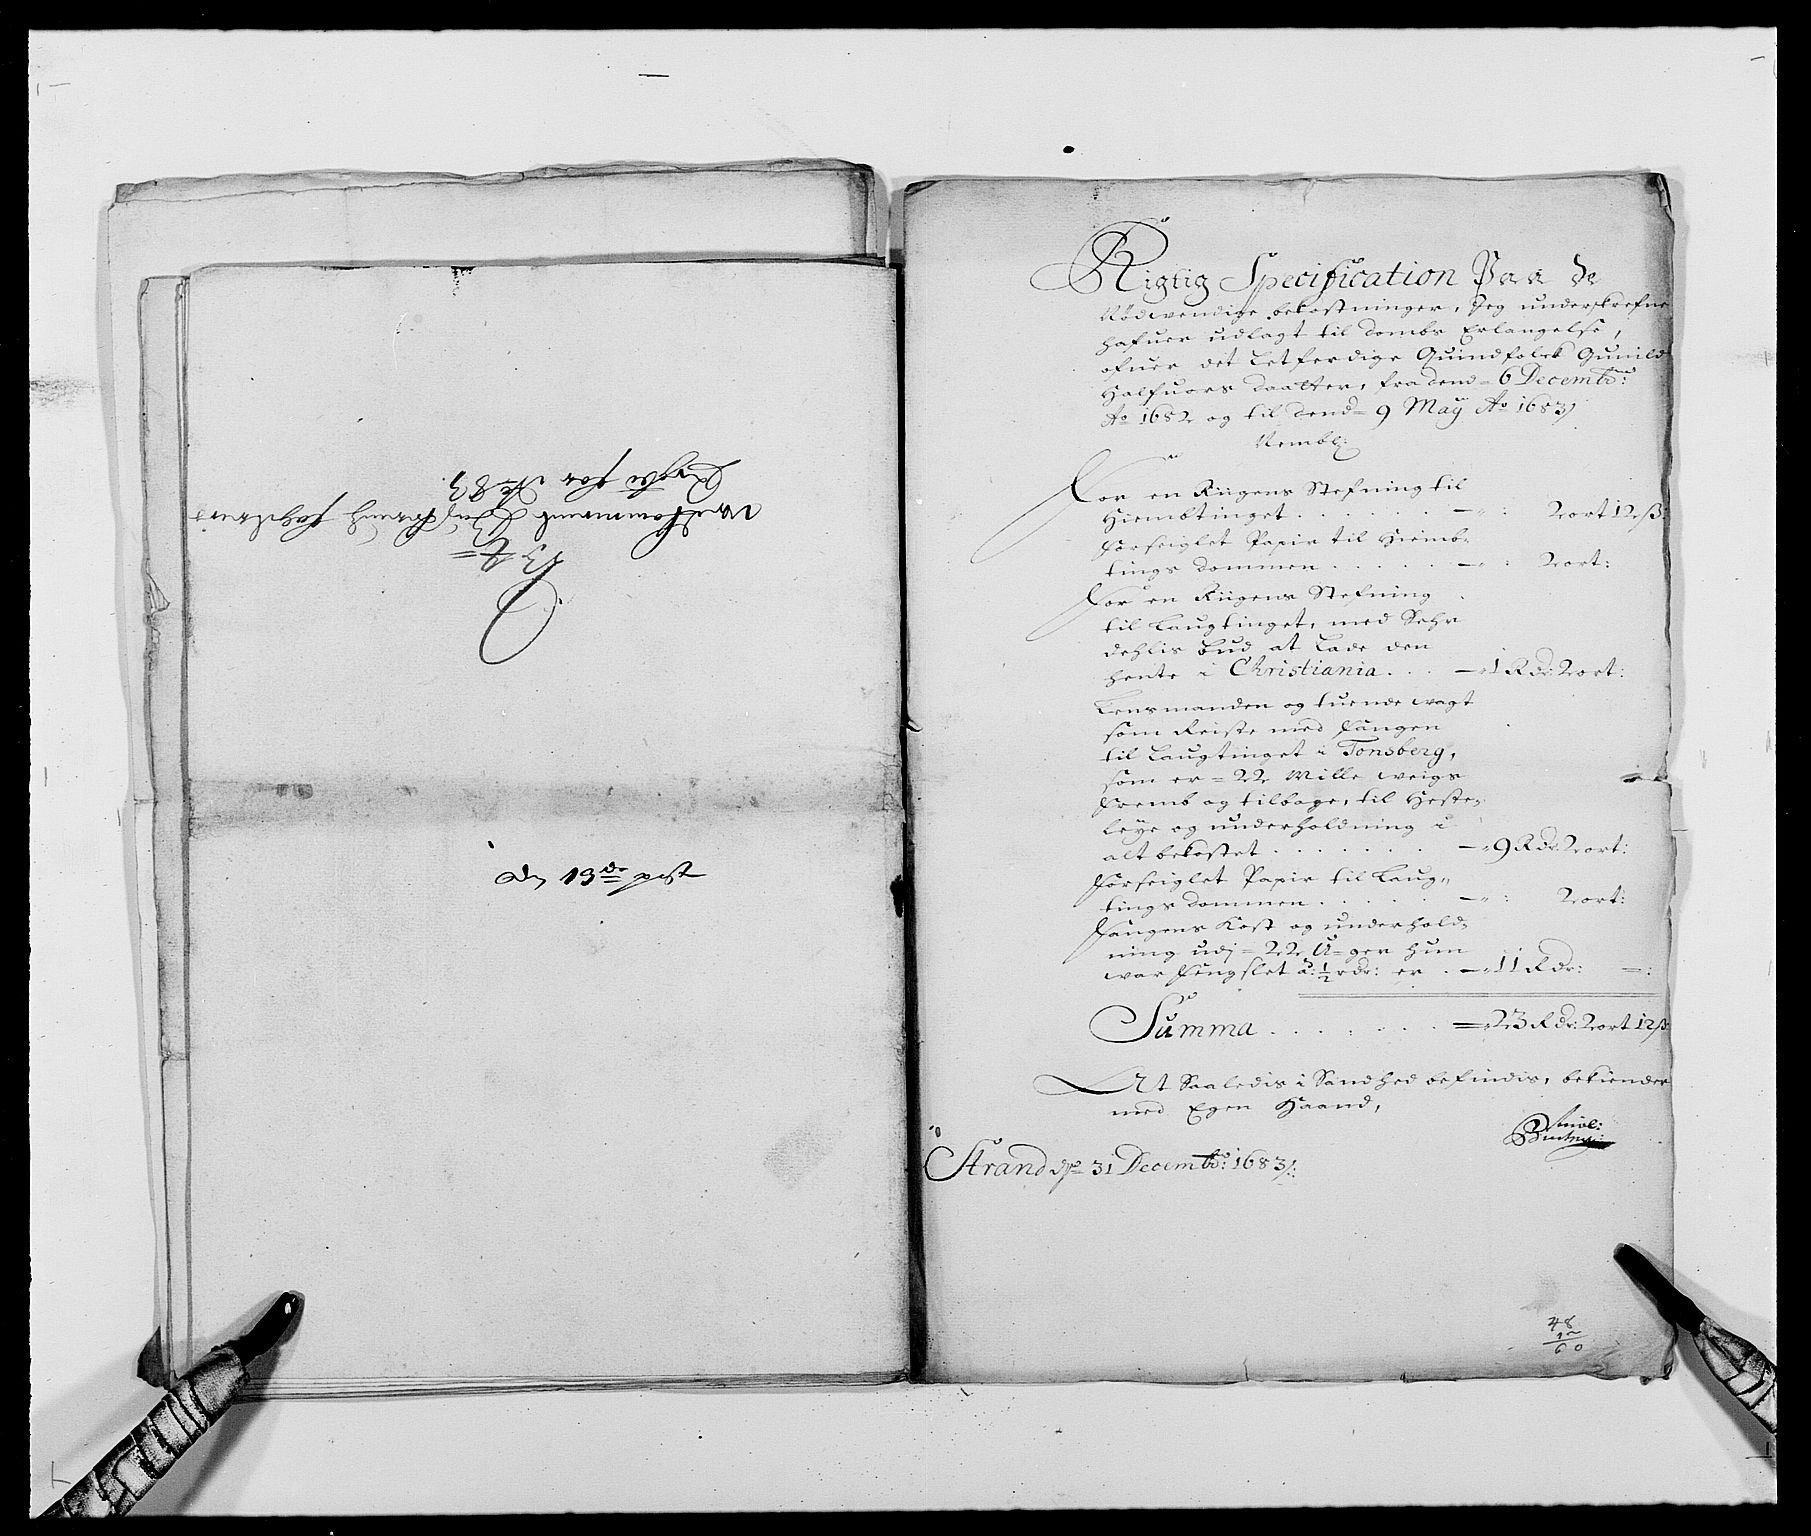 Den 13de post
Rigtig Specification Paa de
Nödwendige bekostninger, Jeg underskrefne
hafuer udlagt til dombs Erlangelse,
ofuer det Letferdige Quindfolck Gunild
Halfuors daatter, fra dend 6 Decembr:
Ao 1682 og til dend 9 May Ao 1683
Nembl:
For en Rügens Stefning til
Hiembtinget . . . . . . 2 ort 12 ß:
Forseiglet Papir til Hiemb-
tings dommen . . . . . 2 ort:
For en Rügens Stefning
til Laugtinget, med
bud at Lade den
hente i Christiania . . . 1 Rdr: 2 ort:
Lensmanden og tuende wagt
som Reiste med Fangen
til Laugtinget i Tonsberg,
som er 22 Mille weigs
Fremb og tilbage, til Heste-
Leye og underholdning i
alt bekostet . . . . . . . 9 Rdr: 2 ort:
Forseiglet Papir til Laug-
tings dommen . . . . . 2 ort:
Fangens Kost og underhold-
ning udj 22 Uger hun
war Fengslet a: ½ rdr: er . 11 Rdr: -:
Summa . . . . . . . 23 Rdr: 2 ort 12 ß
At Saaledis i Sandhed befindis, bekiender
med Egen Haand,
Strand 31 Decembr: 1683
48
12
60